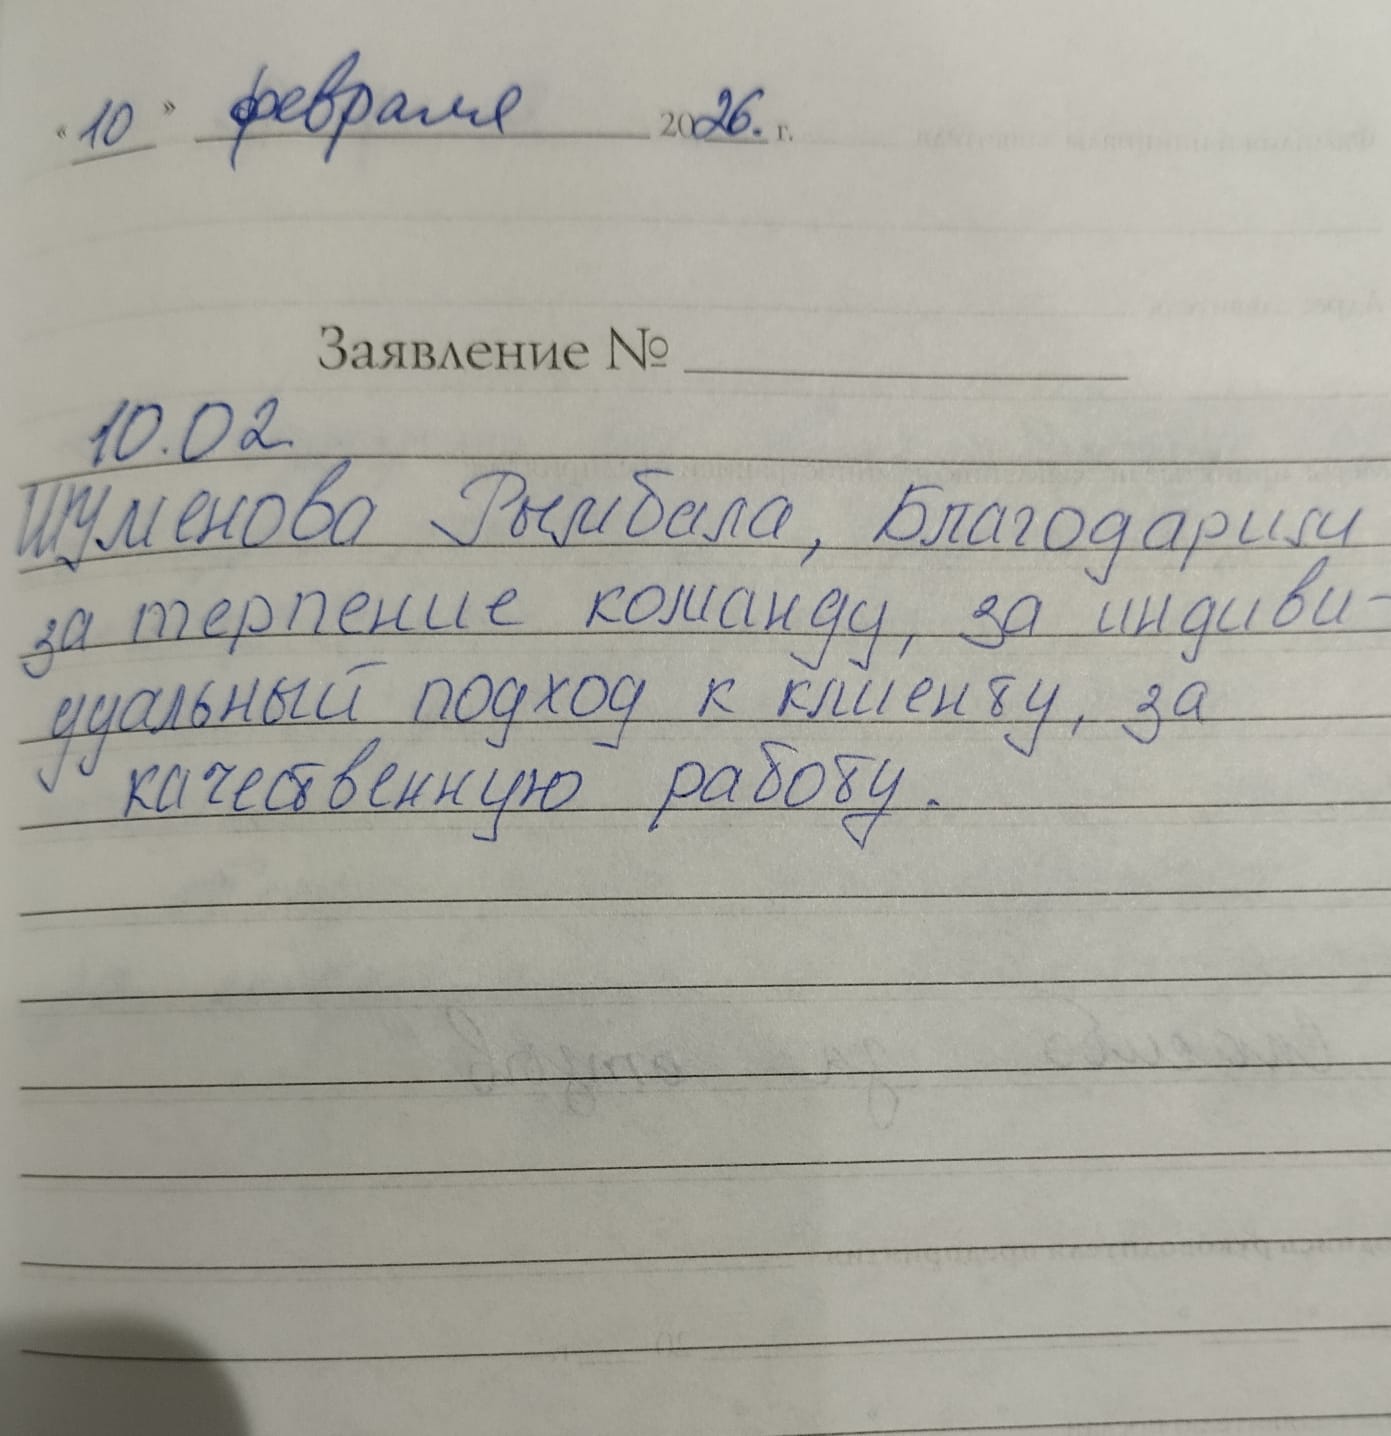 «10» февраля 2026. г.
Заявление №
10.02
Шуменова Рымбала, Благодарим
за терпение команду, за индиви-
дуальный подход к клиенту, за
качественную работу.